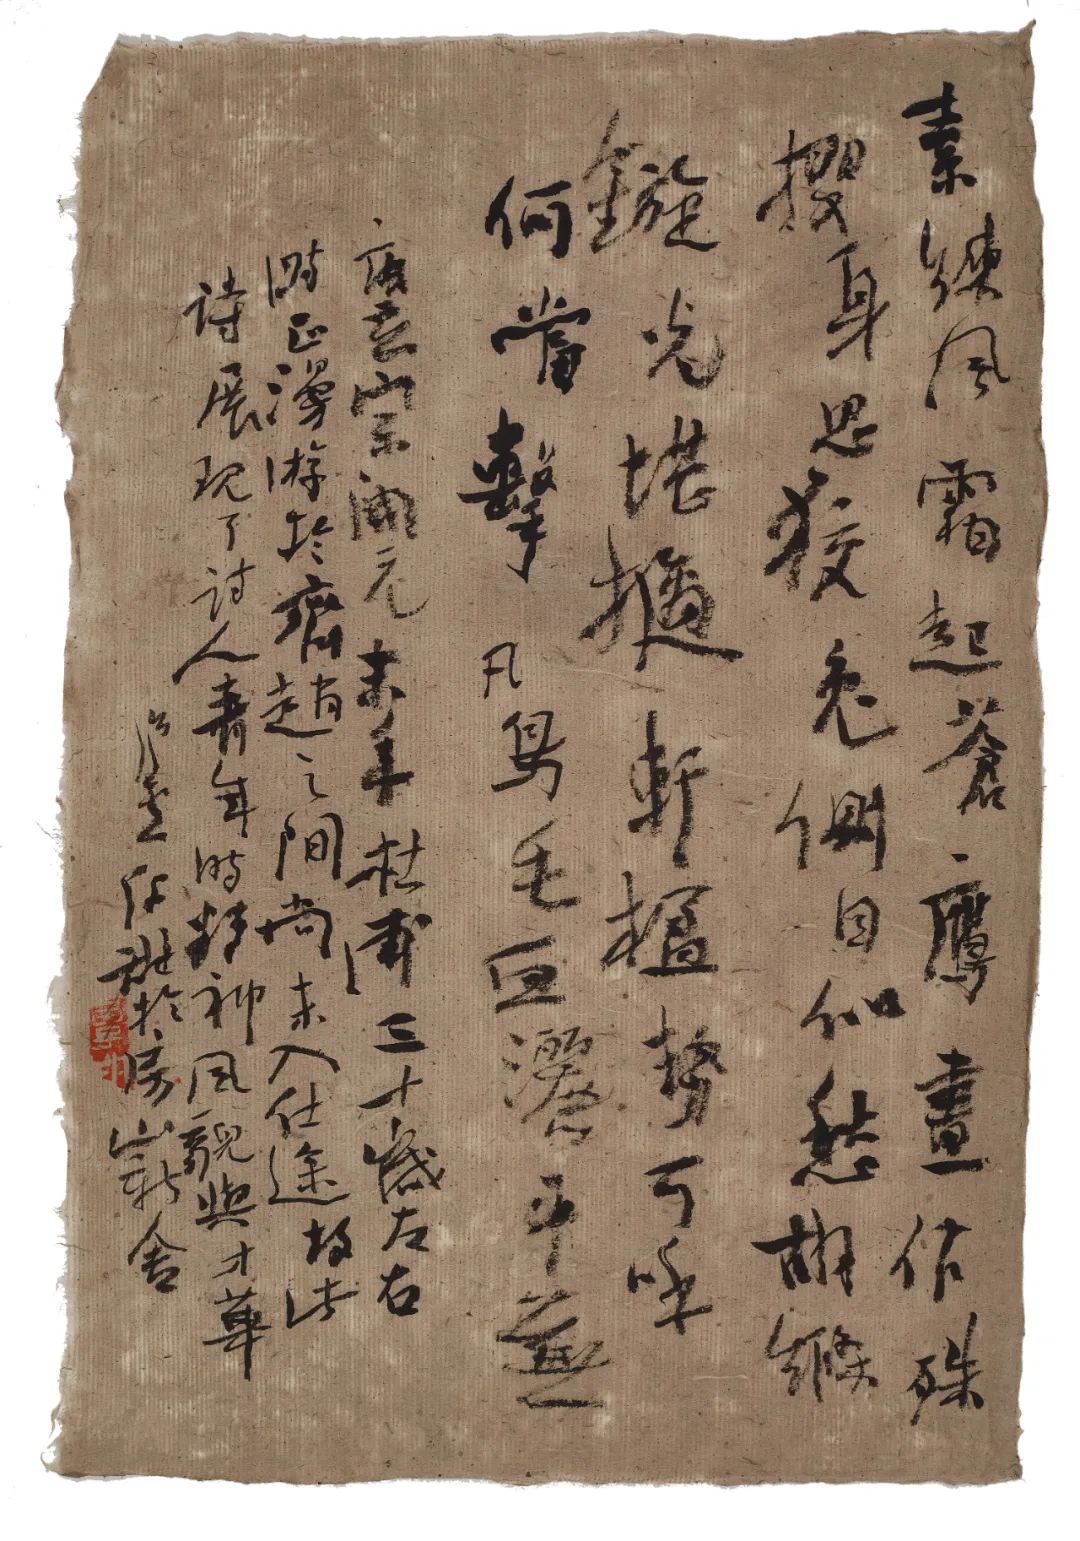 素練風霜起蒼鷹畫作殊
㩳身思狡兔側目似愁胡絛
鏇光堪擿軒楹勢可呼
何當擊凡鳥毛血灑平蕪
唐玄宗開元末年杜甫三十歲左右
時正漫游於齊趙之間尚未入仕途故此
詩展現了詩人青年時精神風貌與才華
於房山新舍